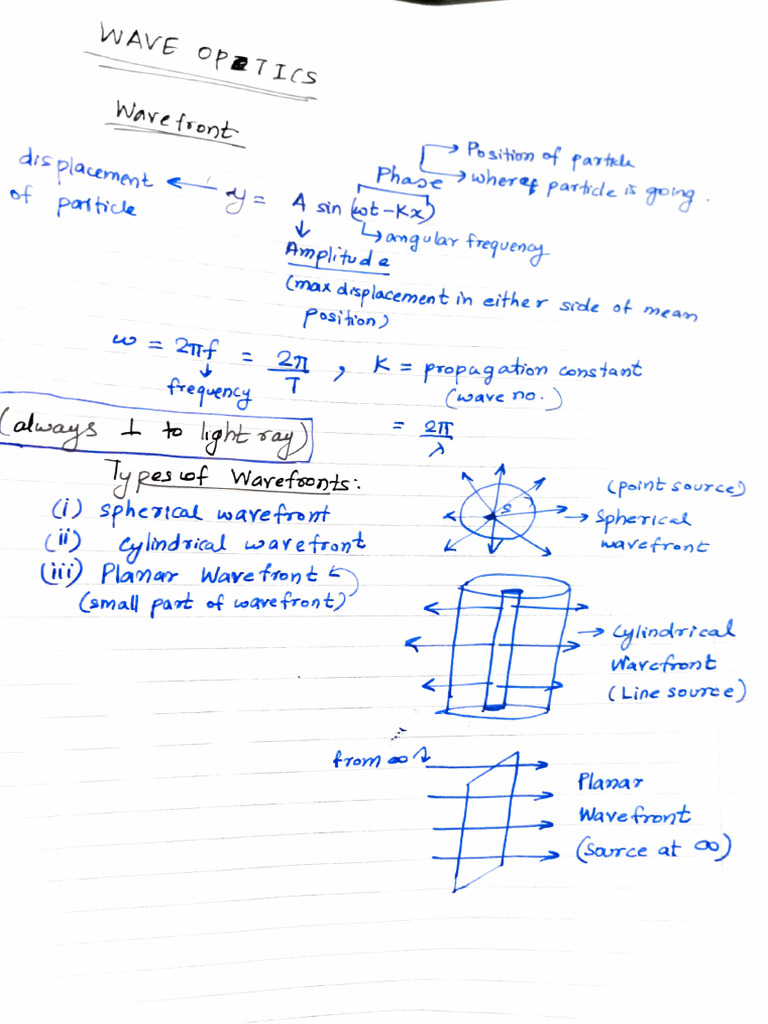 WAVE OPTICS
Wavefront
displacement of particle ← y = A sin (ωt - Kx)
Phase → Position of particle
→ where particle is going.
↳ angular frequency
↓
Amplitude
(max displacement in either side of mean
position)
ω = 2πf = 2π/T , K = propagation constant
↓
frequency
(wave no.)
= 2π/λ
(always ⊥ to light ray)
Types of Wavefronts:
(i) spherical wavefront
(ii) cylindrical wavefront
(iii) Planar Wavefront
(small part of wavefront)
S
(point source)
→ Spherical
wavefront
→ Cylindrical
Wavefront
(Line source)
from ∞
Planar
Wavefront
(source at ∞)